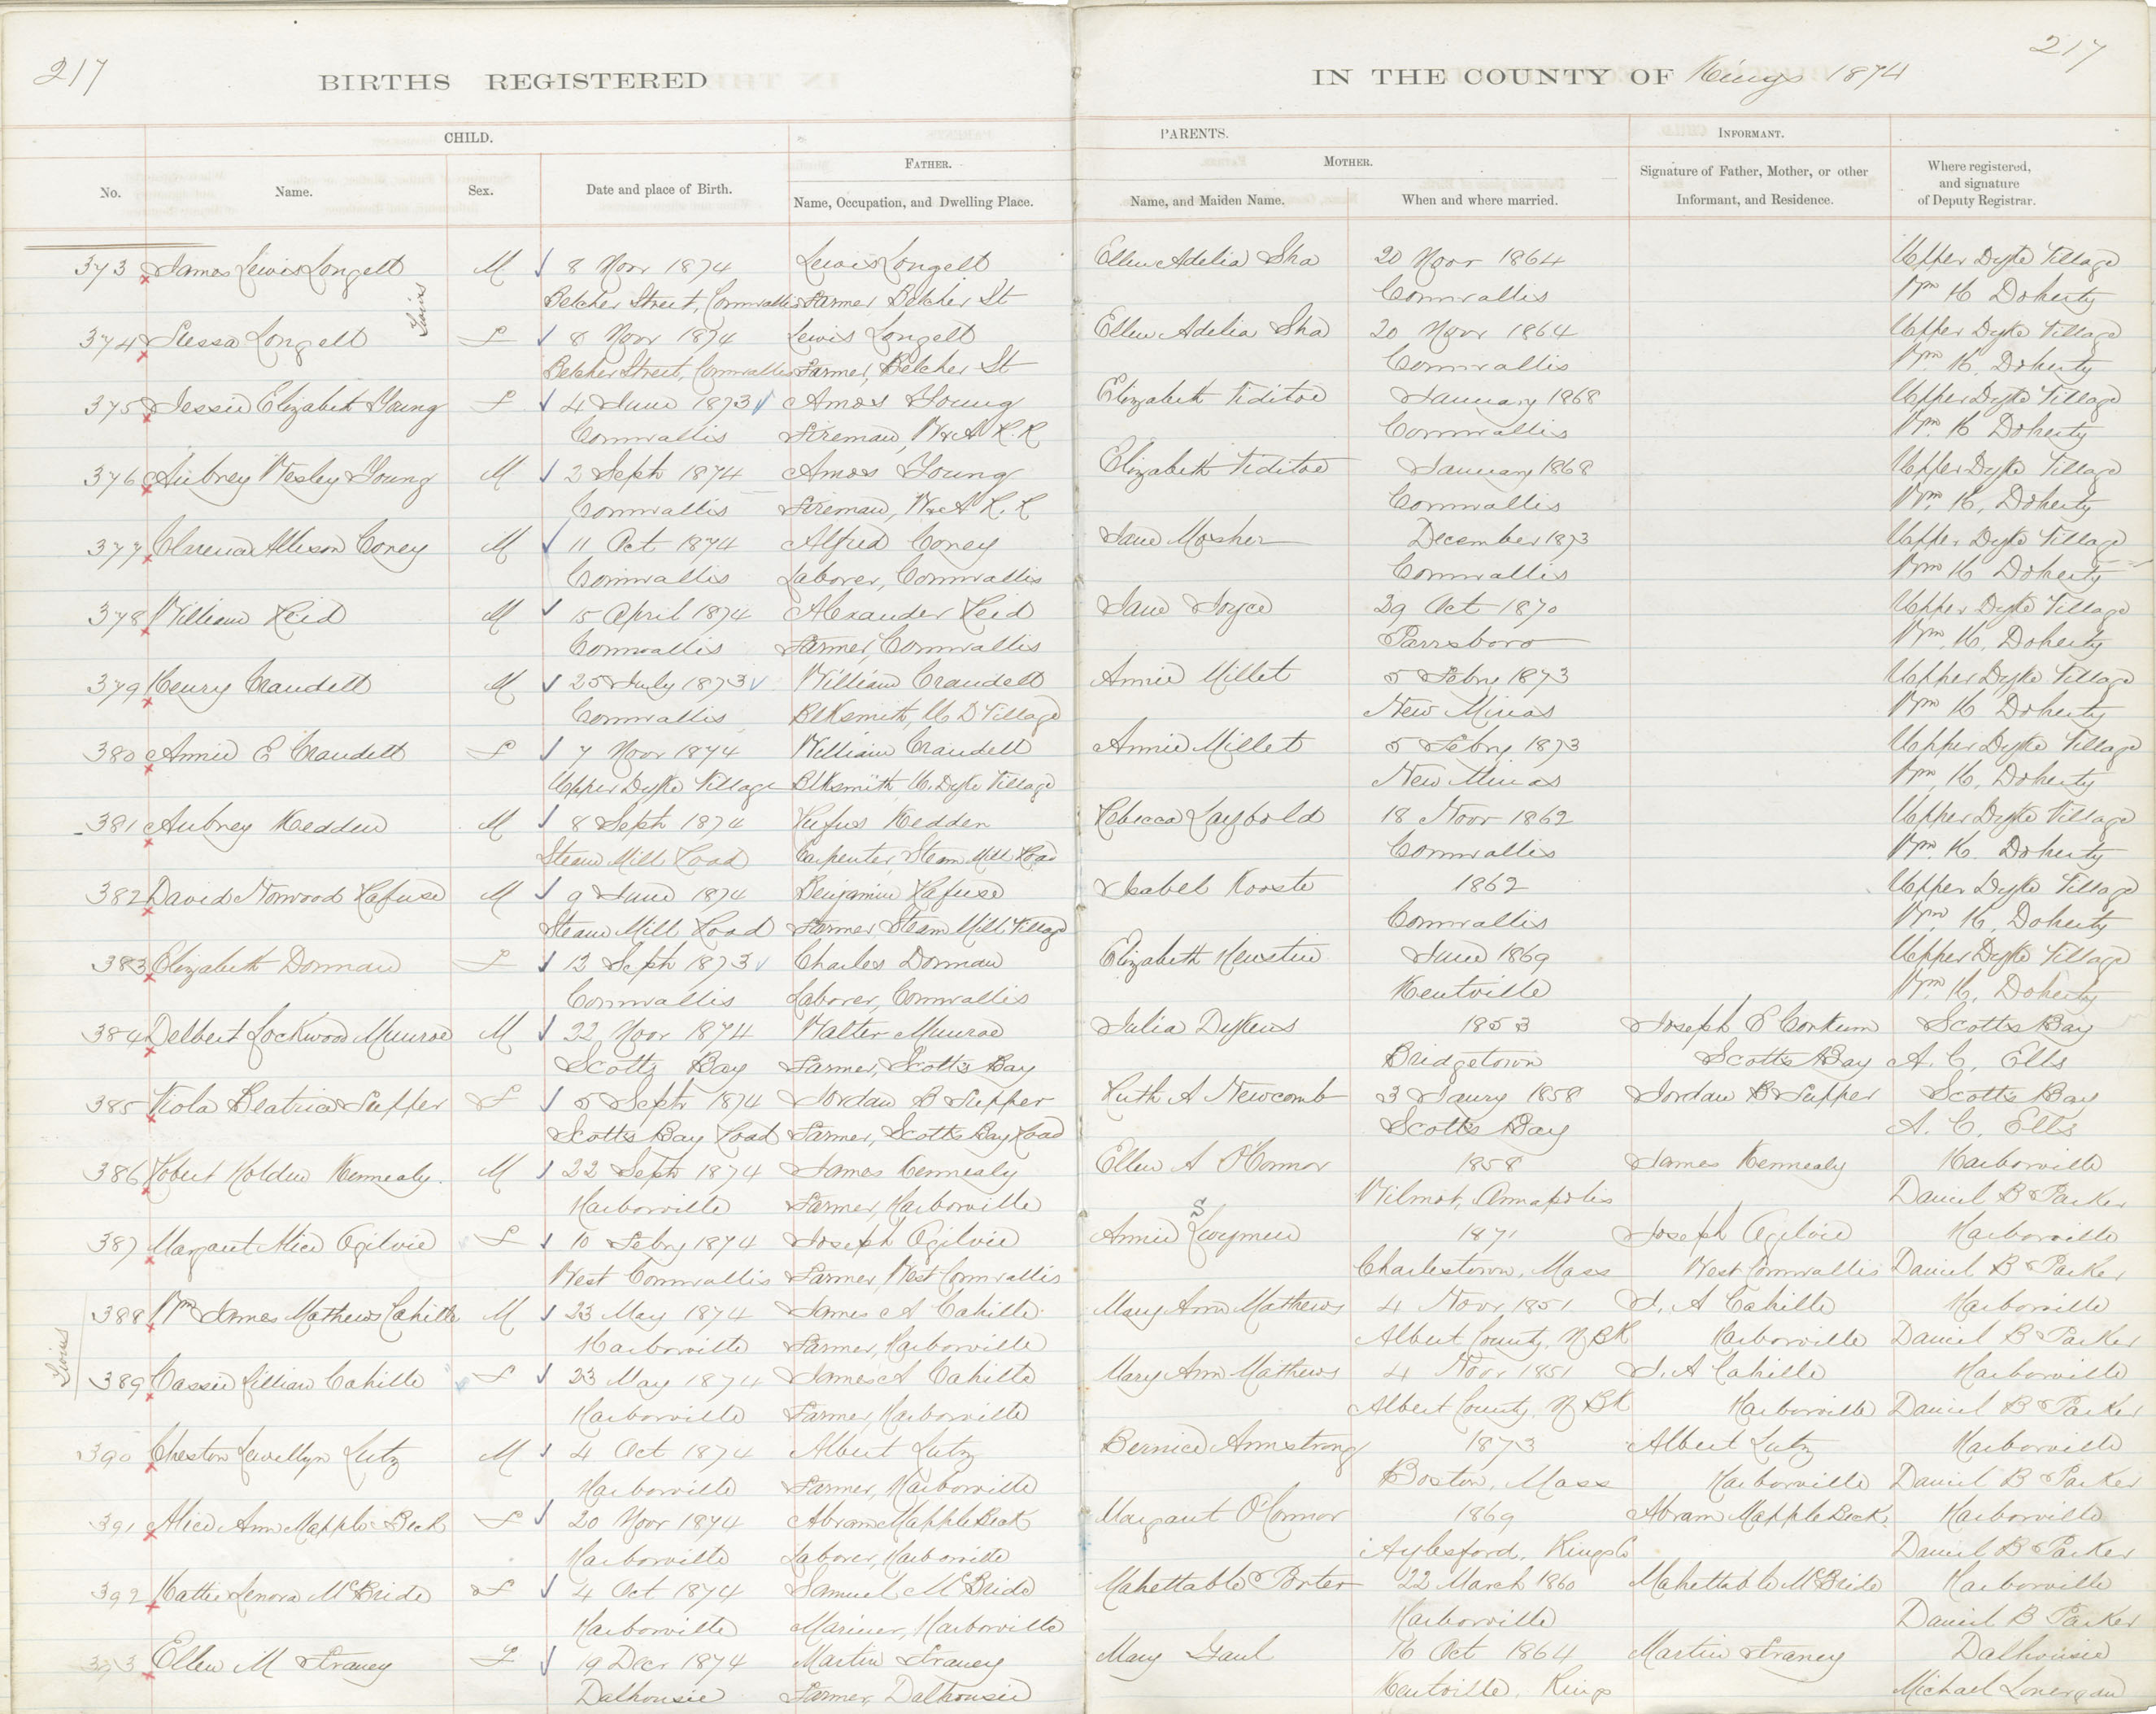 217
BIRTHS REGISTERED
IN THE COUNTY OF Kings 1874
217
CHILD.
PARENTS.
INFORMANT.
No.
Name.
Sex.
Date and place of Birth.
FATHER.
Name, Occupation, and Dwelling Place.
MOTHER.
Name, and Maiden Name.
When and where married.
Signature of Father, Mother, or other
Informant, and Residence.
Where registered,
and signature
of Deputy Registrar.
373 James Lewis Longell M 8 Novr 1874 Lewis Longell Ellen Adelia Sha 20 Novr 1864 Upper Dyke Village
Belcher Street, Cornwallis Farmer, Belcher St Cornwallis Wm H Doherty
Twins
374 Longell F 8 Novr 1874 Lewis Longell Ellen Adelia Sha 20 Novr 1864 Upper Dyke Village
Belcher Street, Cornwallis Farmer, Belcher St Cornwallis Wm H. Doherty
375 Jessie Elizabeth Young F 4 June 1873 Amos Young Elizabeth Tiditoe January 1868 Upper Dyke Village
Cornwallis Fireman, W & A R. R Cornwallis Wm. H Doherty
376 Aubrey Wesley Young M 2 Sept 1874 Amos Young Elizabeth Tiditoe January 1868 Upper Dyke Village
Cornwallis Fireman, W & A R. R Cornwallis Wm. H, Doherty
377 Clarence Allison Corey M 11 Oct 1874 Alfred Corey Jane Mosher December 1873 Upper Dyke Village
Cornwallis Laborer, Cornwallis Cornwallis Wm H Doherty
378 William Reid M 15 April 1874 Alexander Reid Jane Joyce 29 Oct 1870 Upper Dyke Village
Cornwallis Farmer, Cornwallis Parrsboro Wm. H. Doherty
379 Henry Crandell M 25 July 1873 William Crandell Annie Millet 5 Febry 1873 Upper Dyke Village
Cornwallis Blksmith, U D Village New Minas Wm H Doherty
380 Annie E Crandell F 7 Novr 1874 William Crandell Annie Millet 5 Febry 1873 Upper Dyke Village
Upper Dyke Village Blksmith U. Dyke Village New Minas Wm. H. Doherty
381 Aubrey Hedden M 8 Sept 1874 Rufus Hedden Rebecca Laybold 18 Novr 1862 Upper Dyke Village
Steam Mill Road Carpenter, Steam Mill Road Cornwallis Wm. H. Doherty
382 David Norwood Rafuse M 9 June 1874 Benjamin Rafuse Isabel 1862 Upper Dyke Village
Steam Mill Road Farmer, Steam Mill Village Cornwallis Wm. H, Doherty
383 Elizabeth Dorman F 12 Sept 1873 Charles Dorman Elizabeth June 1869 Upper Dyke Village
Cornwallis Laborer, Cornwallis Kentville Wm. H, Doherty
384 Delbert Lockwood Munroe M 22 Novr 1874 Walter Munroe Julia Dykens 1853 Joseph E Corkum Scotts Bay
Scotts Bay Farmer, Scotts Bay Bridgetown Scotts Bay A. C, Ells
385 Viola Beatrice Tupper F 5 Septr 1874 Jordan B Tupper Ruth A Newcomb 3 Jaury 1858 Jordan B Tupper Scotts Bay
Scotts Bay Road Farmer, Scotts Bay Road Scotts Bay A. C, Ells
386 Robert Holden Kennealy. M 22 Septr 1874 James Kennealy Ellen A O'Connor 1858 James Kennealy Harborville
Harborville Farmer, Harborville Wilmot, Annapolis Daniel B Parker
387 Margaret Alice Ogilvie F 10 Febry 1874 Joseph Ogilvie Annie 1871 Joseph Ogilvie Harborville
West Cornwallis Farmer, West Cornwallis Charlestown, Mass West Cornwallis Daniel B Parker
Twins
388 Wm James Mathews Cahille M 23 May 1874 James A Cahille Mary Ann Mathews 4 Novr 1851 J. A Cahille Harborville
Harborville Farmer, Harborville Albert County, N BK Harborville Daniel B Parker
389 Cassie Lillian Cahille F 23 May 1874 James A Cahille Mary Ann Mathews 4 Novr 1851 J. A Cahille Harborville
Harborville Farmer, Harborville Albert County. N BK Harborville Daniel B Parker
390 Cheston Lewellyn Lutz M 4 Oct 1874 Albert Lutz Bernice Armstrong 1873 Albert Lutz Harborville
Harborville Farmer, Harborville Boston, Mass Harborville Daniel B Parker
391 Alice Ann Mapple Beck F 20 Novr 1874 Abram Mapple Beck Margaret O'Connor 1869 Abram Mapple Beck Harborville
Harborville Laborer, Harborville Aylesford, Kings Co Daniel B Parker
392 Hattie Lenora McBride F 4 Oct 1874 Samuel McBride Mahettable Porter 22 March 1860 Mahettable McBride Harborville
Harborville Mariner, Harborville Harborville Daniel B Parker
393 Ellen M Straney F 19 Decr 1874 Martin Straney Mary Gaul 16 Oct 1864 Martin Straney Dalhousie
Dalhousie Farmer, Dalhousie Kentville, Kings Michael Lonergan